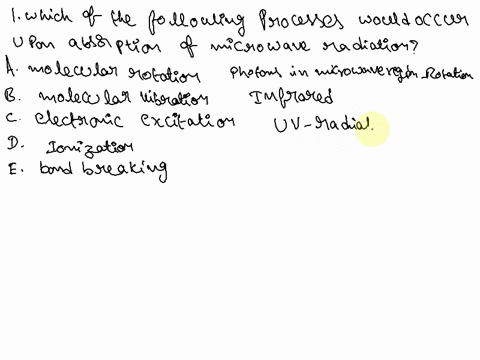 1. which of the following Processes would occur
Upon absorption of microwave radiation?
A. molecular rotation Photons in microwave region Rotation
B. molecular vibration Infrared
C. electronic excitation UV-radial
D. Ionization
E. bond breaking